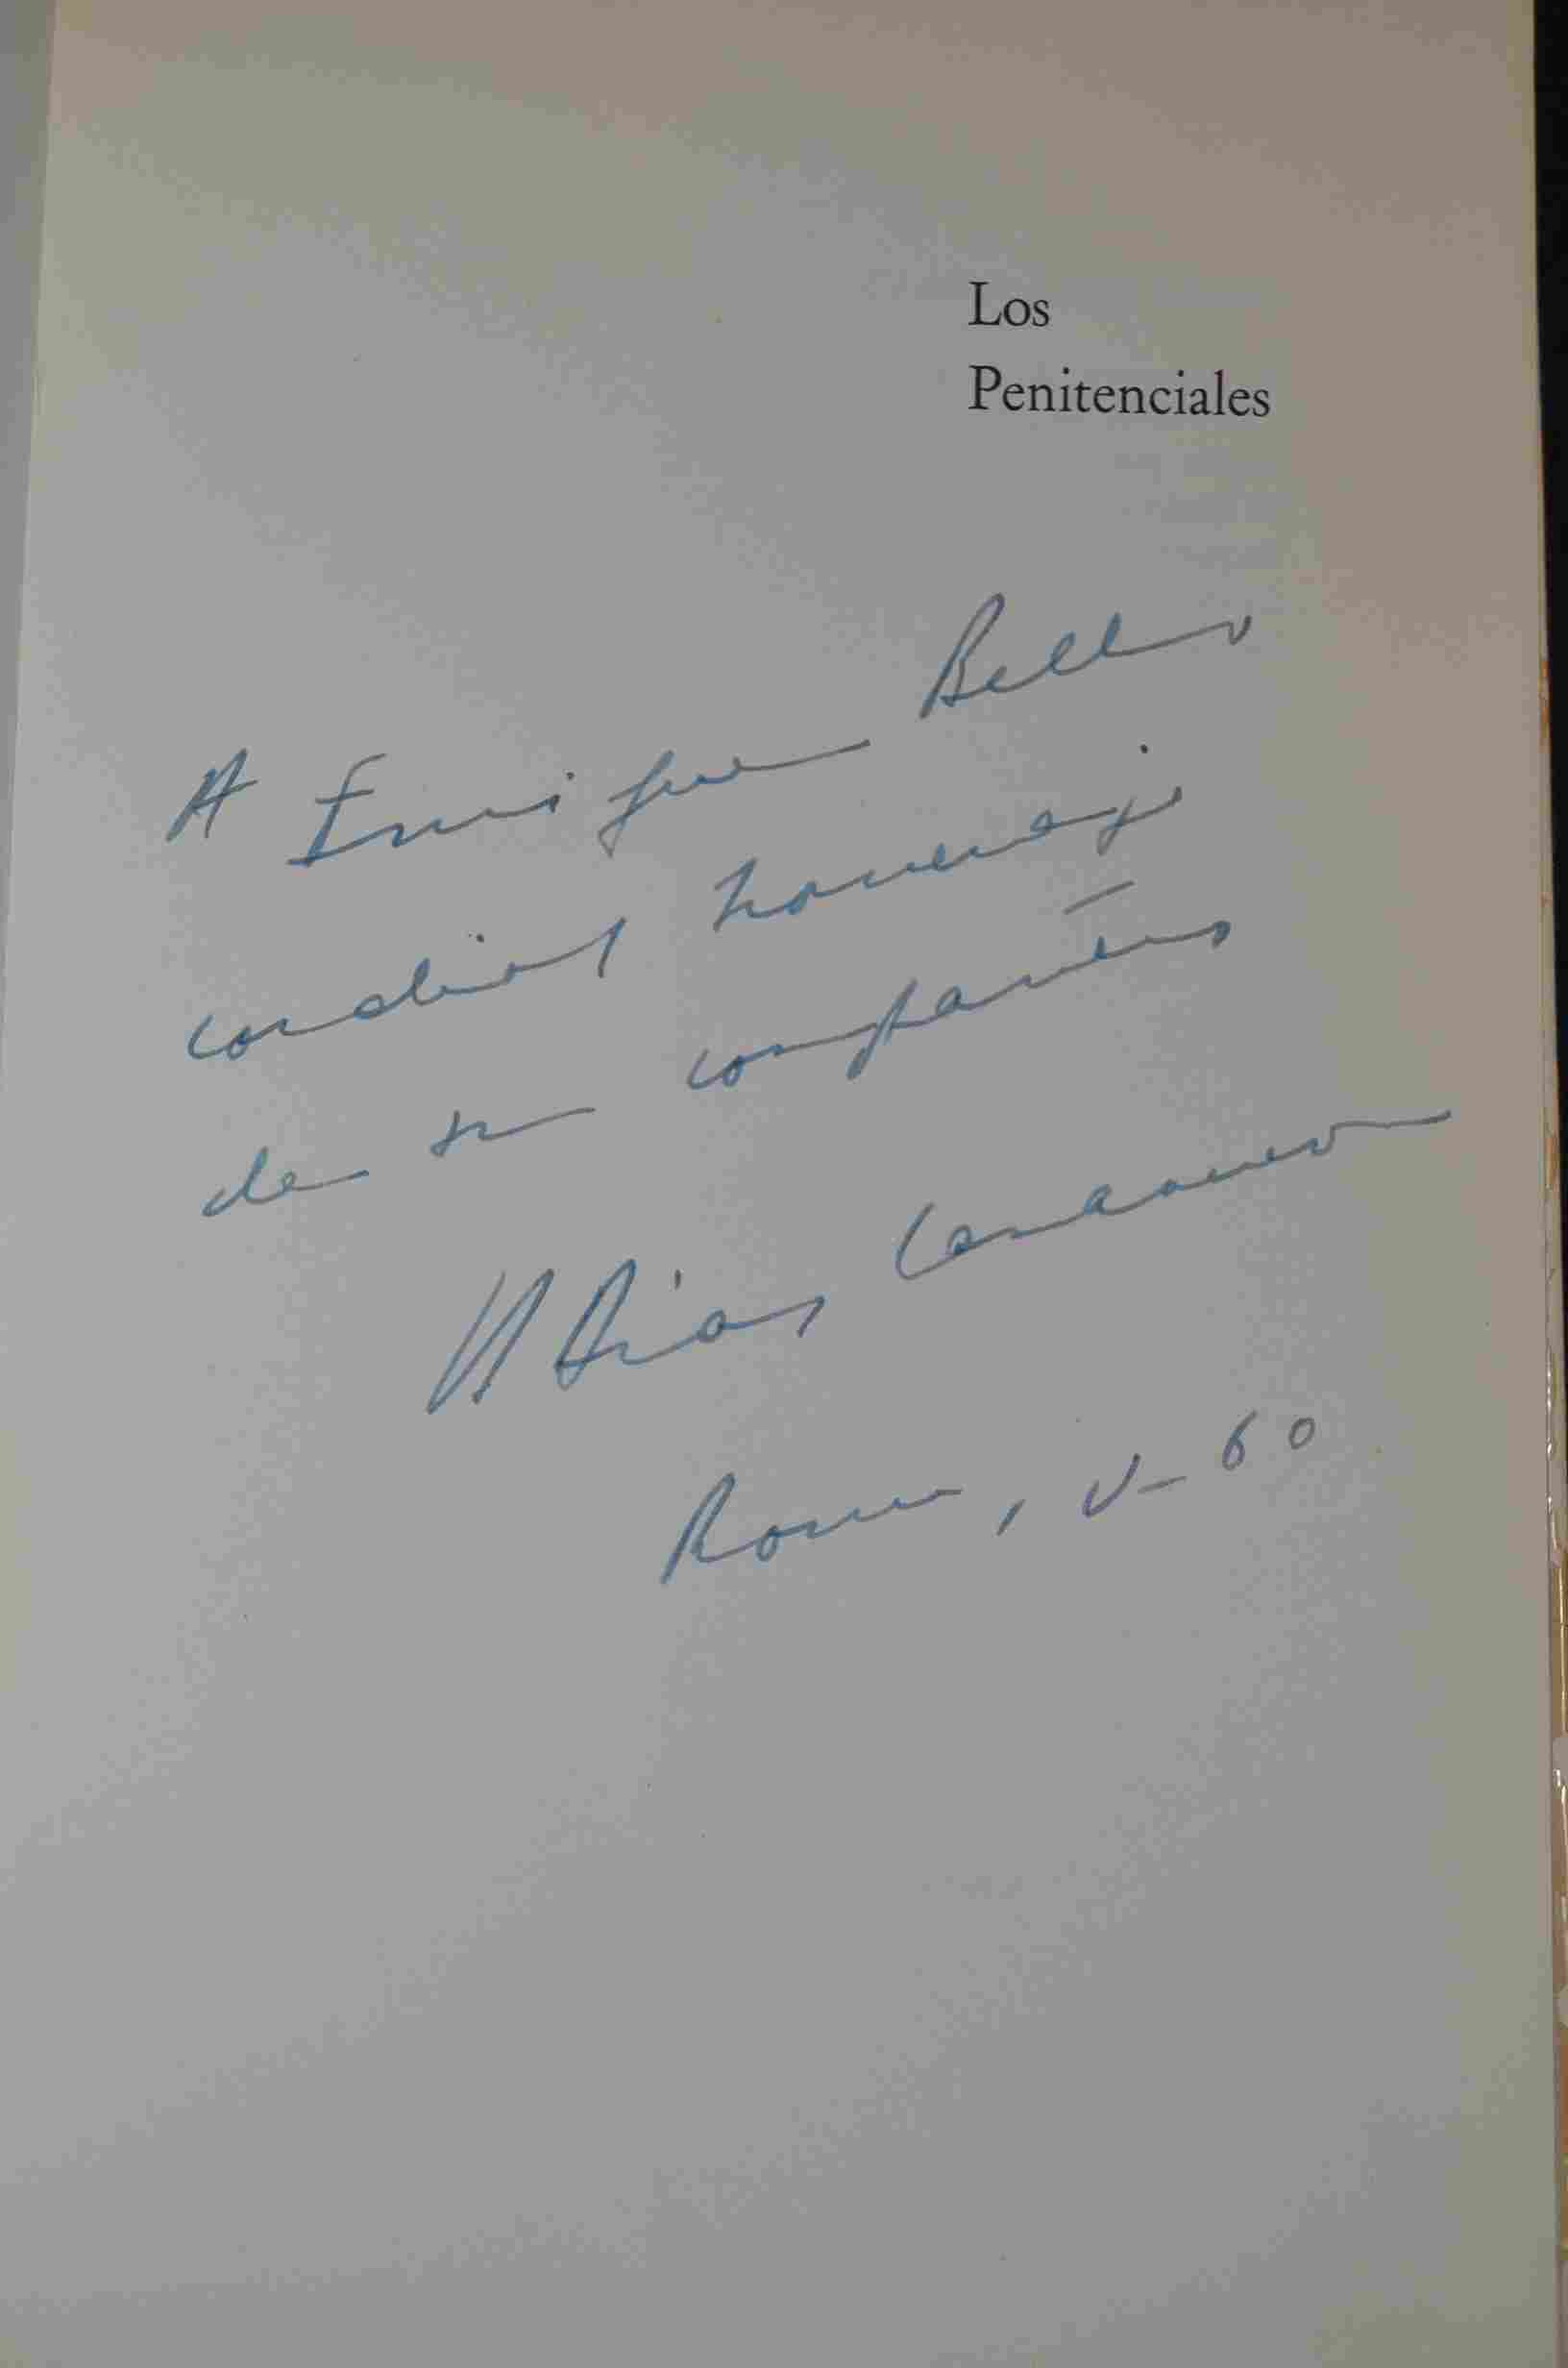 Los
Penitenciales
A Enrique Bello
cordial homenaje
de su compañero
H Díaz Casanueva
Roma, V-60